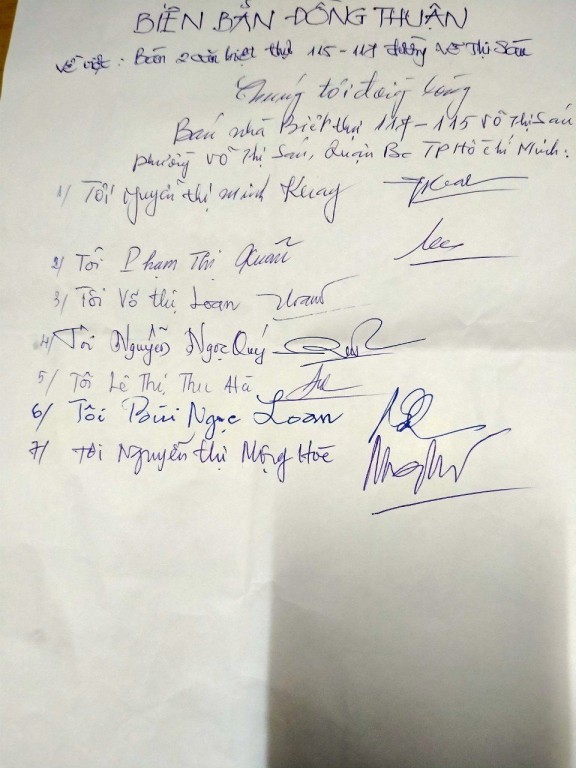 BIÊN BẢN ĐỒNG THUẬN
Về việc: Bán 2 căn biệt thự 115-117 đường Võ Thị Sáu
Chúng tôi đồng lòng
Bán nhà Biệt thự 117-115 Võ Thị Sáu
phường Võ Thị Sáu, Quận Ba TP Hồ Chí Minh:
1/ Tôi Nguyễn thị minh
2/ Tôi Phạm Thị Xuân
3/ Tôi Võ thị Loan
4/ Tôi Nguyễn Ngọc Quý
5/ Tôi Lê Thị Thu Hà
6/ Tôi Bùi Ngọc Loan
7/ Tôi Nguyễn thị Mộng Hòe